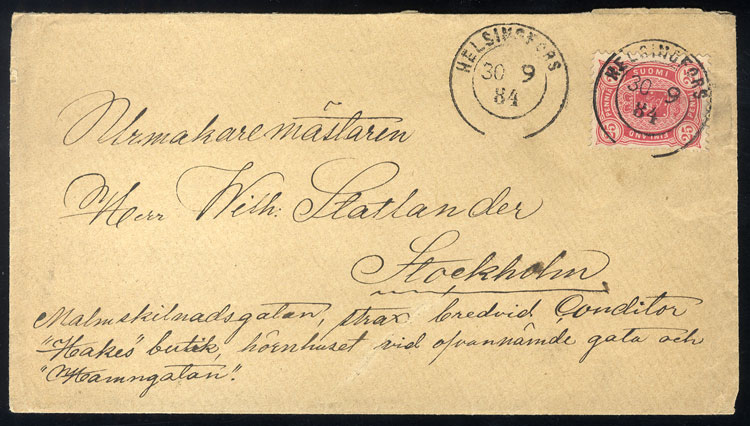 HELSINGFORS
30 9
84
HELSINGFORS
30 9
84
SUOMI
25 PENNIÄ 25
FINLAND
Urmakaremästaren
Herr Wilh: Statlander
Stockholm
Malmskilnadsgatan, strax bredvid Conditor
"Hakes" butik, hörnhuset vid ofvannämde gata och
"Hamngatan".